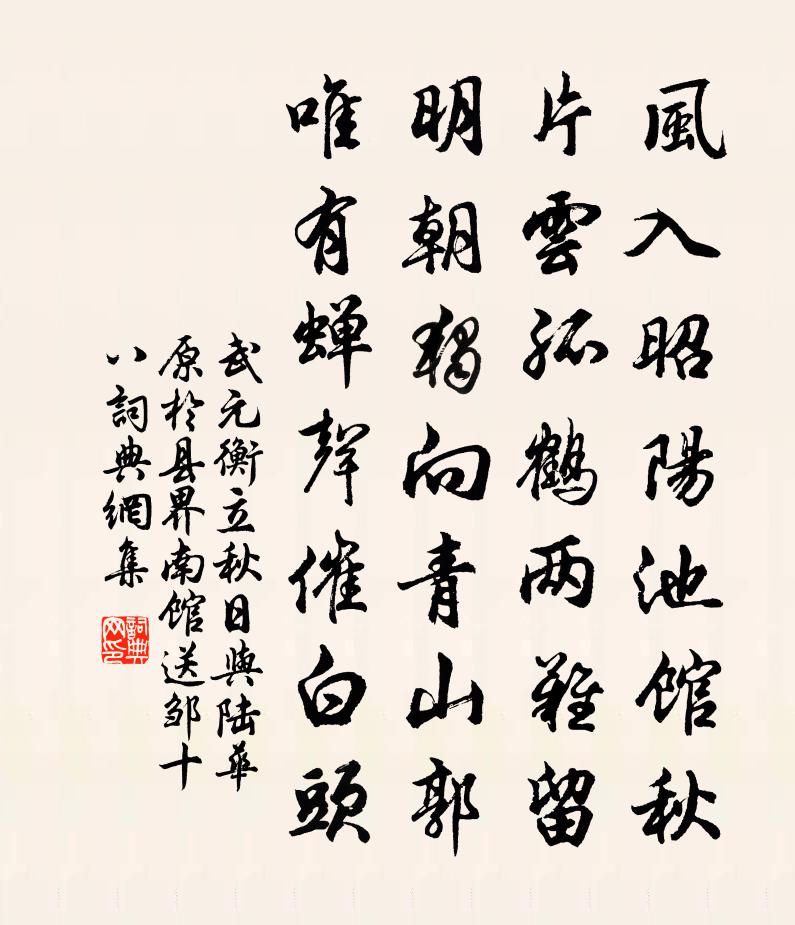 風入昭陽池館秋
片雲孤鶴两難留
明朝獨向青山郭
唯有蟬聲催白頭
武元衡立秋日與陸華
原於县界南館送邹十
八詞典網集
詞典网印